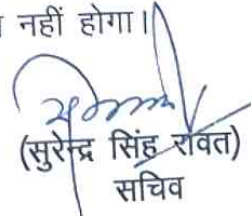 नहीं होगा।
(सुरेन्द्र सिंह रावत)
सचिव